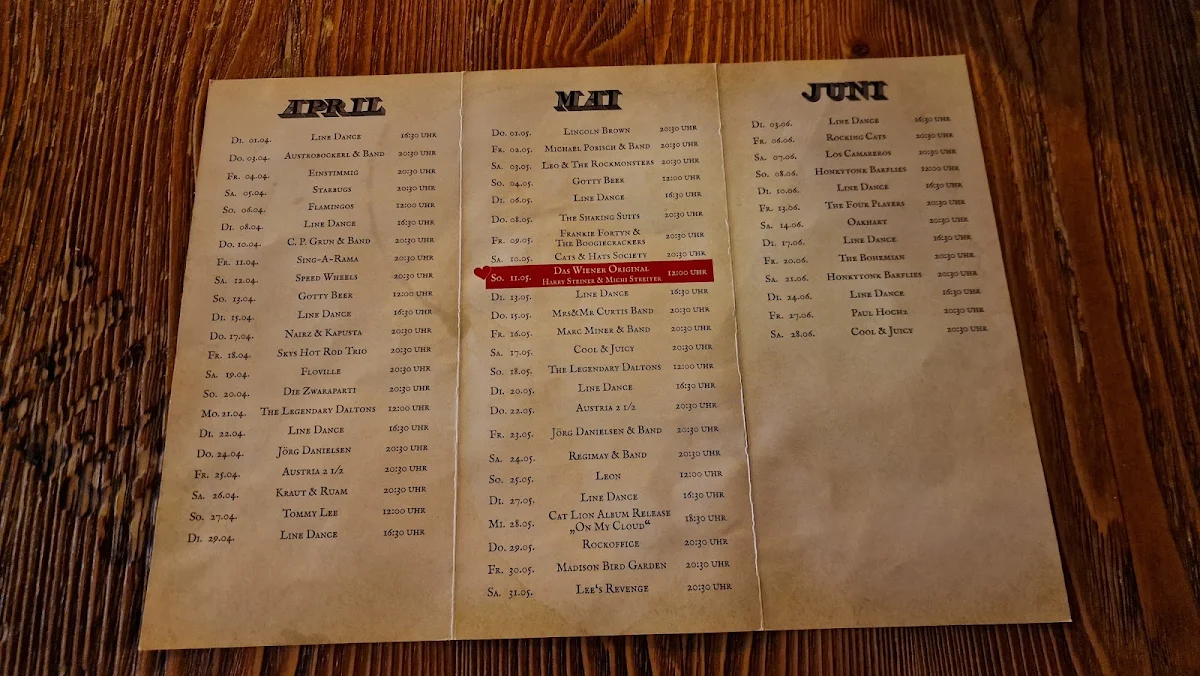 APRIL
Di. 01.04. Line Dance 16:30 Uhr
Do. 03.04. Austrobockerl & Band 20:30 Uhr
Fr. 04.04. Einstimmig 20:30 Uhr
Sa. 05.04. Starbugs 20:30 Uhr
So. 06.04. Flamingos 12:00 Uhr
Di. 08.04. Line Dance 16:30 Uhr
Do. 10.04. C. P. Grun & Band 20:30 Uhr
Fr. 11.04. Sing-A-Rama 20:30 Uhr
Sa. 12.04. Speed Wheels 20:30 Uhr
So. 13.04. Gotty Beer 12:00 Uhr
Di. 15.04. Line Dance 16:30 Uhr
Do. 17.04. Nairz & Kapusta 20:30 Uhr
Fr. 18.04. Skys Hot Rod Trio 20:30 Uhr
Sa. 19.04. Floville 20:30 Uhr
So. 20.04. Die Zwaraparti 20:30 Uhr
Mo. 21.04. The Legendary Daltons 12:00 Uhr
Di. 22.04. Line Dance 16:30 Uhr
Do. 24.04. Jörg Danielsen 20:30 Uhr
Fr. 25.04. Austria 2 1/2 20:30 Uhr
Sa. 26.04. Kraut & Ruam 20:30 Uhr
So. 27.04. Tommy Lee 12:00 Uhr
Di. 29.04. Line Dance 16:30 Uhr
MAI
Do. 01.05. Lincoln Brown 20:30 Uhr
Fr. 02.05. Michael Pobisch & Band 20:30 Uhr
Sa. 03.05. Leo & The Rockmonsters 20:30 Uhr
So. 04.05. Gotty Beer 12:00 Uhr
Di. 06.05. Line Dance 16:30 Uhr
Do. 08.05. The Shaking Suits 20:30 Uhr
Fr. 09.05. Frankie Fortyn & 20:30 Uhr
The Boogiecrackers
Sa. 10.05. Cats & Hats Society 20:30 Uhr
So. 11.05. Das Wiener Original 12:00 Uhr
Harry Steiner & Michi Streiter
Di. 13.05. Line Dance 16:30 Uhr
Do. 15.05. Mrs&Mr Curtis Band 20:30 Uhr
Fr. 16.05. Marc Miner & Band 20:30 Uhr
Sa. 17.05. Cool & Juicy 20:30 Uhr
So. 18.05. The Legendary Daltons 12:00 Uhr
Di. 20.05. Line Dance 16:30 Uhr
Do. 22.05. Austria 2 1/2 20:30 Uhr
Fr. 23.05. Jörg Danielsen & Band 20:30 Uhr
Sa. 24.05. Regimay & Band 20:30 Uhr
So. 25.05. Leon 12:00 Uhr
Di. 27.05. Line Dance 16:30 Uhr
Mi. 28.05. Cat Lion Album Release 18:30 Uhr
„On My Cloud“
Do. 29.05. Rockoffice 20:30 Uhr
Fr. 30.05. Madison Bird Garden 20:30 Uhr
Sa. 31.05. Lee's Revenge 20:30 Uhr
JUNI
Di. 03.06. Line Dance 16:30 Uhr
Fr. 06.06. Rocking Cats 20:30 Uhr
Sa. 07.06. Los Camareros 20:30 Uhr
So. 08.06. Honkytonk Barflies 12:00 Uhr
Di. 10.06. Line Dance 16:30 Uhr
Fr. 13.06. The Four Players 20:30 Uhr
Sa. 14.06. Oakhart 20:30 Uhr
Di. 17.06. Line Dance 16:30 Uhr
Fr. 20.06. The Bohemian 20:30 Uhr
Sa. 21.06. Honkytonk Barflies 20:30 Uhr
Di. 24.06. Line Dance 16:30 Uhr
Fr. 27.06. Paul Hoch2 20:30 Uhr
Sa. 28.06. Cool & Juicy 20:30 Uhr